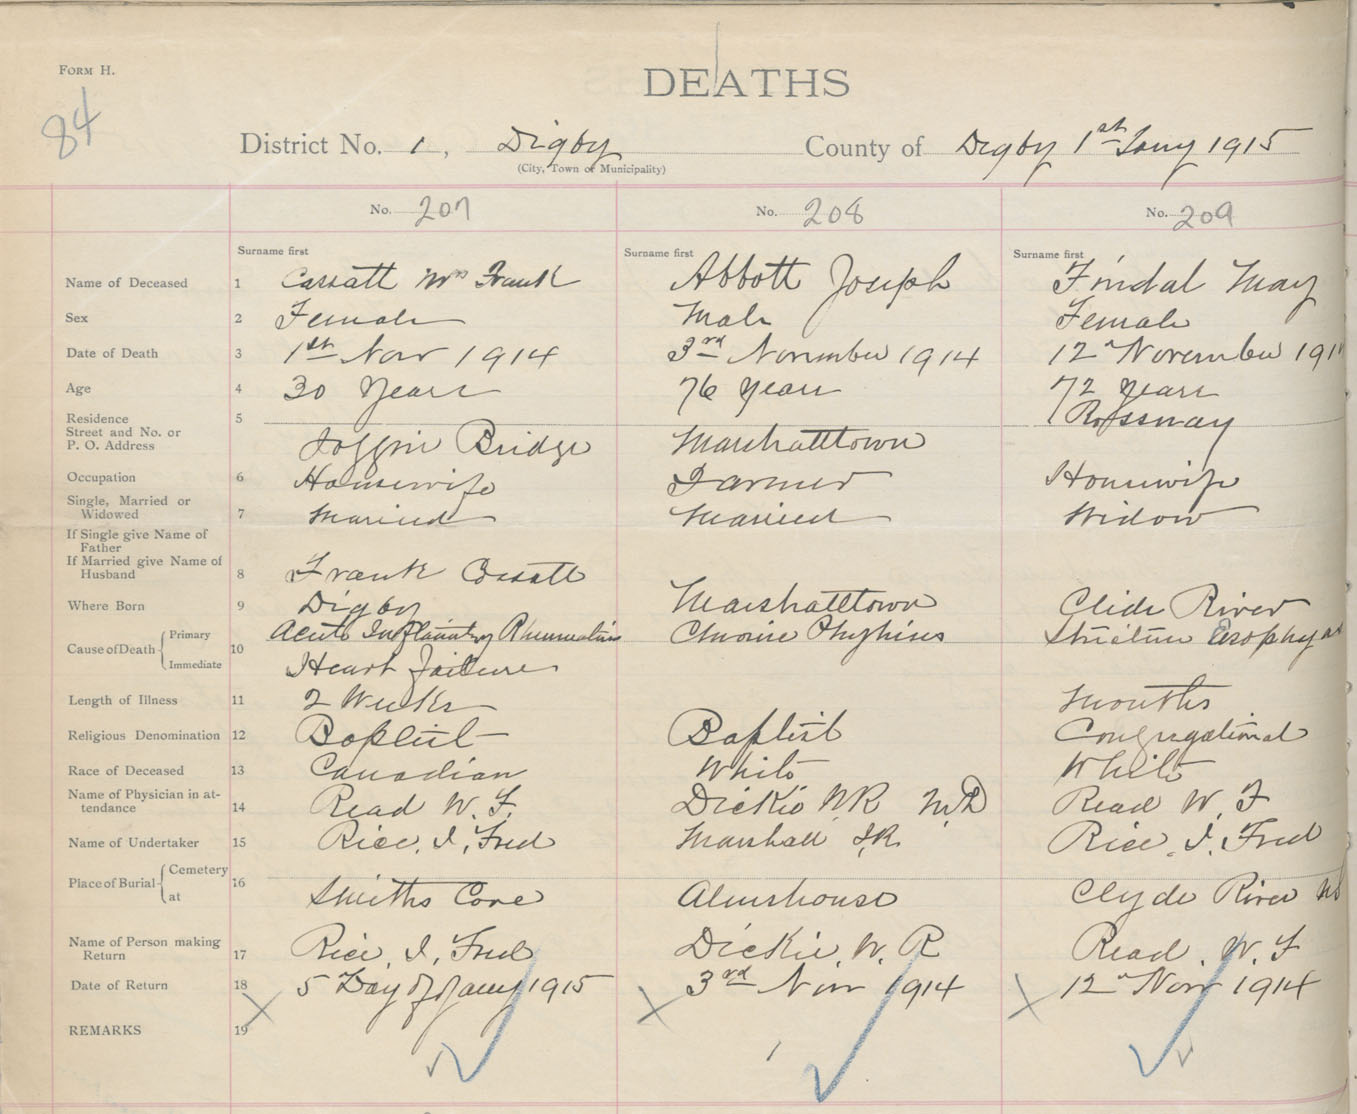 FORM H.
DEATHS
84
District No. 1, Digby County of Digby 1st Jany 1915
(City, Town or Municipality)
No. 207 No. 208 No. 209
Surname first Surname first Surname first
Name of Deceased 1 Cassatt Mrs Frank Abbott Joseph Tindal May
Sex 2 Female Male Female
Date of Death 3 1st Nov 1914 3rd November 1914 12" November 191
Age 4 30 Years 76 Years 72 Years
Residence
Street and No. or
P. O. Address 5 Joggin Bridge Marshalltown Rossway
Occupation 6 Housewife Farmer Housewife
Single, Married or
Widowed 7 Married Married Widow
If Single give Name of
Father
If Married give Name of
Husband 8 Frank Cossatt
Where Born 9 Digby Marshalltown Clide River
Cause of Death Primary 10 Acute Rheumatism Chronic Phythisis Stricture
Immediate Heart failure
Length of Illness 11 2 Weeks Months
Religious Denomination 12 Baptist Baptist Congregational
Race of Deceased 13 Canadian White White
Name of Physician in at-
tendance 14 Read W. F. Dickie W R M.D Read W. F
Name of Undertaker 15 Rice, I, Fred Marshall J.R. Rice, I, Fred
Place of Burial Cemetery
at 16 Smiths Cove Almshouse Clyde River NS
Name of Person making
Return 17 Rice, I, Fred Dickie, W. R Read, W. F
Date of Return 18 5 Day of Jany 1915 3rd Nov 1914 12" Nov 1914
REMARKS 19